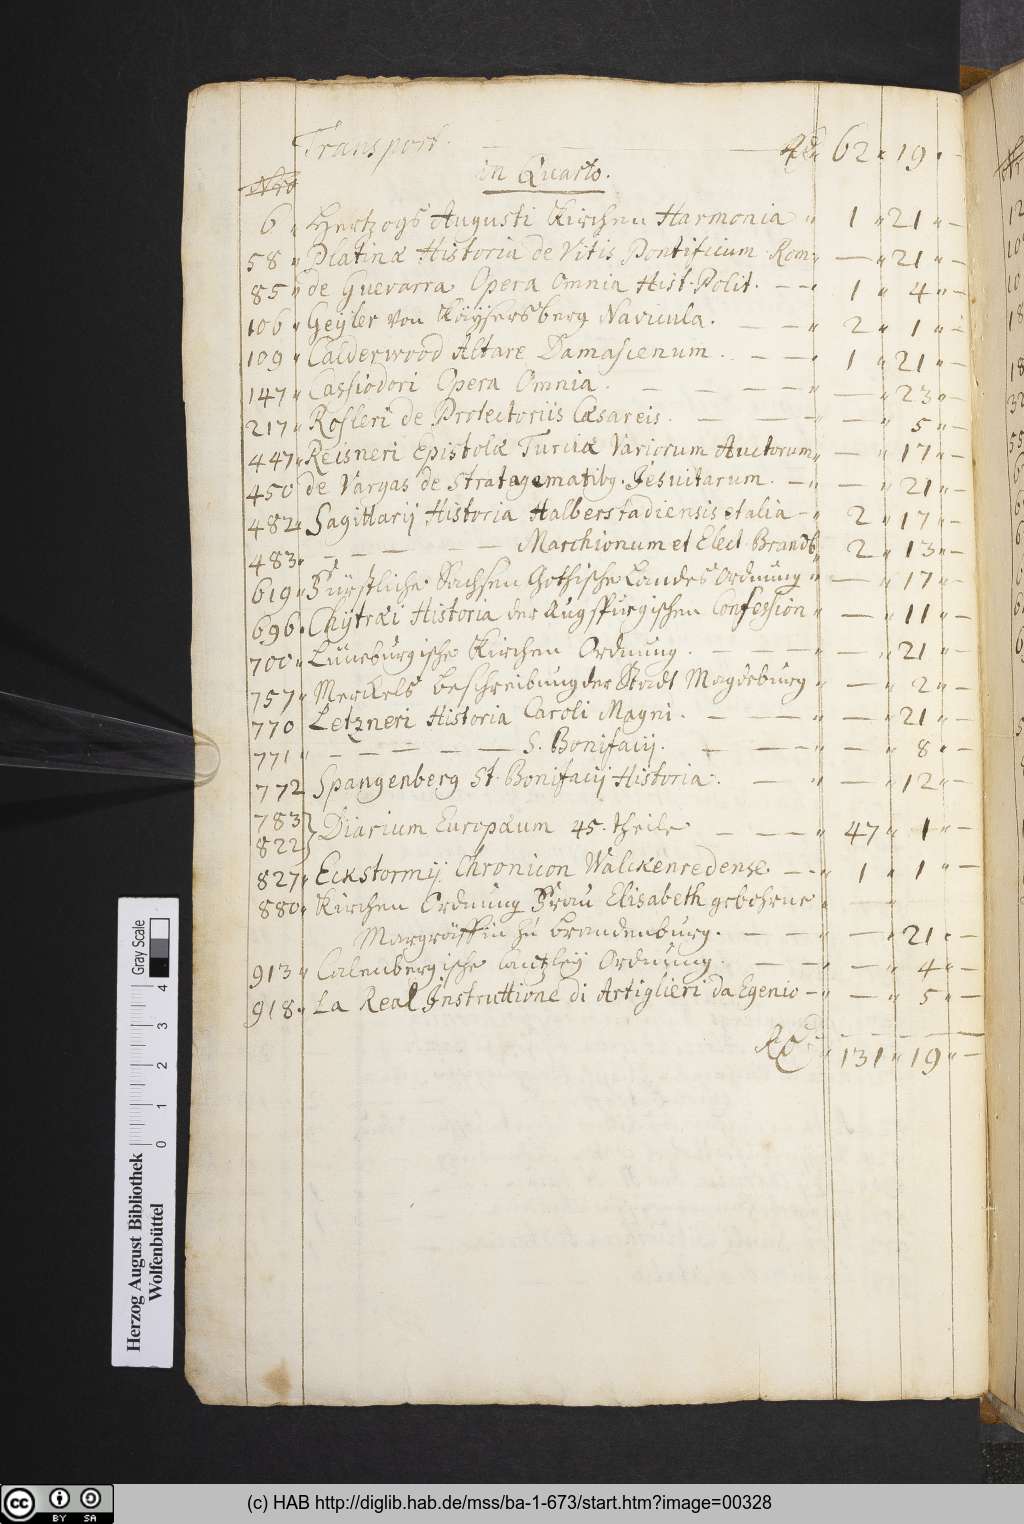 Transport. — — — Rd 62 „ 19 „ —
in Quarto.
Nro
6 „ Hertzogs Augusti Kirchen Harmonia „ 1 „ 21 „ —
58 „ Platinæ Historia de Vitis Pontificum Rom „ — „ 21 „ —
85 „ de Guevarra Opera Omnia Hist. Polit. — — „ 1 „ 4 „ —
106 „ Geyler von Käysersberg Navicula. — — „ 2 „ 1 „ —
109 „ Calderwood Altare Damascenum. — — „ 1 „ 21 „ —
147 „ Cassiodori Opera Omnia. — — — — „ — „ 23 „ —
217 „ Rosleri de Protectoriis Cæsareis. — — — „ — „ 5 „ —
447 „ Reisneri Epistolæ Turciæ Variorum Auctorum „ — „ 17 „ —
450 de Vargas de Stratagematibq. Jesuitarum. — „ — „ 21 „ —
482 „ Sagittarij Historia Halberstadiensis et alia — „ 2 „ 17 „ —
483 „ — — — — — Marchionum et Elect. Brandb „ 2 „ 13 „ —
619 „ Fürstliche Sachsen Gothische Landes Ordnung „ — „ 17 „ —
696 „ Chytræi Historia der Augspurgischen Confession „ — „ 11 „ —
700 „ Lüneburgische Kirchen Ordnung. — — — „ — „ 21 „ —
757 „ Merckels beschreibung der Stadt Magdeburg „ — „ 2 „ —
770 Letzneri Historia Caroli Magni. — — — „ — „ 21 „ —
771 „ — — — — — S. Bonifacij. — — — „ — „ 8 „ —
772 Spangenberg St. Bonifacij Historia. — — „ — „ 12 „ —
783
822 } Diarium Europæum 45. theile — — — „ 47 „ 1 „ —
827 „ Eckstormij Chronicon Walckenredense. — — „ 1 „ 1 „ —
880 „ Kirchen Ordnung Frau Elisabeth gebohrne „ —
Margräffin zu brandenburg. — — — „ — „ 21 „ —
913 „ Calenbergische Cantzley Ordnung. — — „ — „ 4 „ —
918 „ La Real Instruttione di Artiglieri da Egenio — „ — „ 5 „ —
Rd „ 131 „ 19 „ —
Herzog August Bibliothek
Wolfenbüttel
Gray Scale
0 1 2 3 4
cc BY SA
(c) HAB http://diglib.hab.de/mss/ba-1-673/start.htm?image=00328